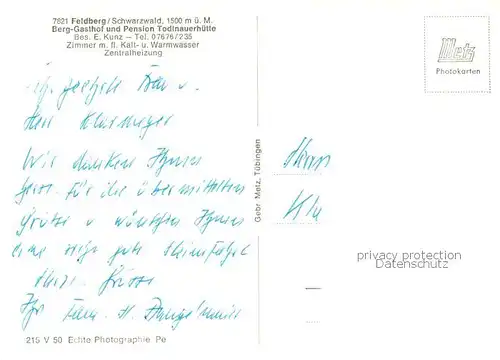 7821 Feldberg/Schwarzwald, 1500 m ü. M.
Berg-Gasthof und Pension Todtnauerhütte
Bes. E. Kunz – Tel. 07676/235
Zimmer m. fl. Kalt- u. Warmwasser
Zentralheizung
Metz
Photokarten
geehrte Frau u.
Herr
Wir danken Ihnen
für die übermittelten
Grüße u wünschen Ihnen
eine recht gute Heimfahrt
Grüsse
Ihr Fam. H.
Gebr. Metz, Tübingen
Herrn
privacy protection
Datenschutz
21S V 50 Echte Photographie Pe